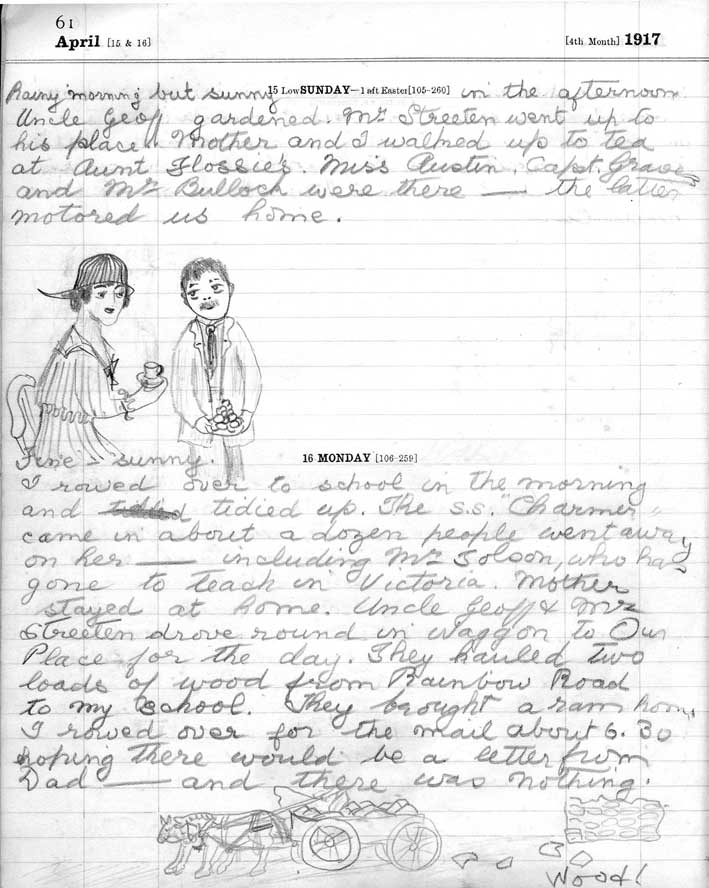 61
April [15 & 16] [4th Month] 1917
15 Low SUNDAY—1 aft Easter [105-260]
Rainy morning but sunny in the afternoon
Uncle Geoff gardened. Mr Streeten went up to
his place. Mother and I walked up to tea
at Aunt Flossie's. Miss Austin, Capt. Graves
and Mr Bulloch were there — the latter
motored us home.
16 MONDAY [106-259]
Fine - sunny.
I rowed over to school in the morning
and tidied up. The s.s. "Charmer"
came in about a dozen people went away
on her — including Mr Tolson, who has
gone to teach in Victoria. Mother
stayed at home. Uncle Geoff & Mr
Streeten drove round in waggon to Our
Place for the day. They hauled two
loads of wood from Rainbow Road
to my school. They brought a ram home.
I rowed over for the mail about 6.30
hoping there would be a letter from
Dad — and there was nothing.
Wood!